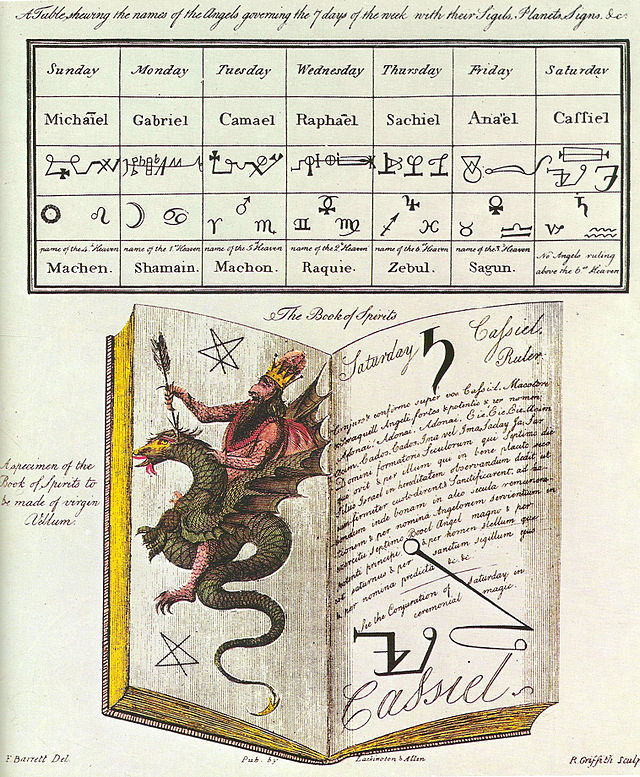 A Table shewing the names of the Angels governing the 7 days of the week with their Sigils, Planets, Signs, &c.
Sunday Monday Tuesday Wednesday Thursday Friday Saturday
Michaïel Gabriel Camael Raphaël Sachiel Anaël Caſſiel
☉ ♌ ☽ ♋ ♂ ♈ ♏ ☿ ♊ ♍ ♃ ♐ ♓ ♀ ♉ ♎ ♄ ♑ ♒
name of the 4th Heaven name of the 1st Heaven name of the 5th Heaven name of the 2d Heaven name of the 6th Heaven name of the 3d Heaven No Angels ruling
Machen. Shamain. Machon. Raquie. Zebul. Sagun. above the 6th Heaven
The Book of Spirits
A specimen of the
Book of Spirits to
be made of virgin
Vellum.
Saturday ♄ Caſsiel
Ruler
Conjuro & confirmo super vos Caſsiel, Macatori
Seraquill Angeli fortes & potentis & per nomen
Adonai, Adonai, Adonai, Eie, Eie, Eie,
Cados, Cados, Ima vel Ima Saday, Ja, Sar
Domini formatoris Seculorum qui Septimo die
& per illum qui in bene placito
filiis Israel in hereditatem observandum dedit ut
custodirent & Sanctificarent, ad
inde bonam in alio secula remunera
& per nomina Angelorum Servientium in
exercitu Septimo Booel Angel magno & per
principe & per nomen stellum quæ
est saturnus & per sanctum sigillum ejus
& per nomina predicta &c &c
See the Conjuration of Saturday in
ceremonial magic.
Caſsiel
F. Barrett Del. Pub. by Lackington & Allen R. Griffith Sculp